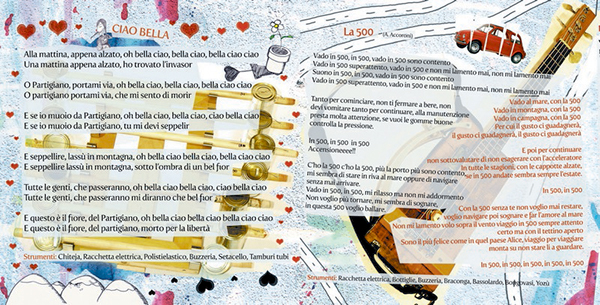 CIAO BELLA
Alla mattina, appena alzato, oh bella ciao, bella ciao, bella ciao ciao
Una mattina appena alzato, ho trovato l'invasor
O Partigiano, portami via, oh bella ciao, bella ciao, bella ciao ciao
O partigiano portami via, che mi sento di morir
E se io muoio da Partigiano, oh bella ciao, bella ciao, ciao bella ciao
E se io muoio da Partigiano, tu mi devi seppelir
E seppellire, lassù in montagna, oh bella ciao, bella ciao, bella ciao ciao
E seppellire, lassù in montagna, sotto l'ombra di un bel fior
Tutte le genti, che passeranno, oh bella ciao bella ciao bella ciao ciao
Tutte le genti, che passeranno mi diranno che bel fior
E questo è il fiore, del Partigiano, oh bella ciao bella ciao bella ciao ciao
E questo è il fiore, del Partigiano, morto per la libertà
Strumenti: Chiteja, Racchetta elettrica, Polistielastico, Buzzeria, Setacello, Tamburi tubi
La 500 –(A Accorsi)
Vado in 500, in 500, vado in 500 sono contento
Vado in 500 superattento, vado in 500 e non mi lamento mai, non mi lamento mai
Suono in 500, in 500, vado in 500 sono contento
Vado in 500 superattento, vado in 500 e non mi lamento mai, non mi lamento mai
Tanto per cominciare, non ti fermare a bere, non
devi vomitare tanto per continuare, alla manutenzione
presta molta attenzione, se vuoi le gomme buone
controlla la pressione.
In 500, in 500, in 500
Accensioneeee!
C'ho la 500 c'ho la 500, più la porto più sono contento,
mi sembra di stare in riva al mare oppure di navigare
senza mai arrivare.
Vado in 500, in 500, mi rilasso ma non mi addormento
Non voglio più tornare, mi sembra di sognare,
in questa 500 voglio ballare.
Vado al mare, con la 500
Vado in montagna, con la 500
Vado in campagna, con la 500
Per cui il gusto ci guadagnerà,
il gusto ci guadagnerà, il gusto ci guadagnerà
E poi per continuare
non sottovalutare di non esagerare con l'acceleratore
in tutte le stagioni, con le cappotte alzate,
se in 500 andate sembra sempre l'estate.
In 500, in 500
Con la 500 senza te non voglio mai restare,
voglio navigare poi sognare e far l'amore al mare
Non mi lamento volo sopra il vento viaggio in 500 sempre attento
certo ma con il tettino aperto
Sono il più felice come in quel paese Alice, viaggio per viaggiare
senza su non stare lì a guardare.
In 500, in 500, in 500, in 500
Strumenti: Racchetta elettrica, Bottiglie, Buzzeria, Braconga, Bassolardo, Bongovasi, Yozù